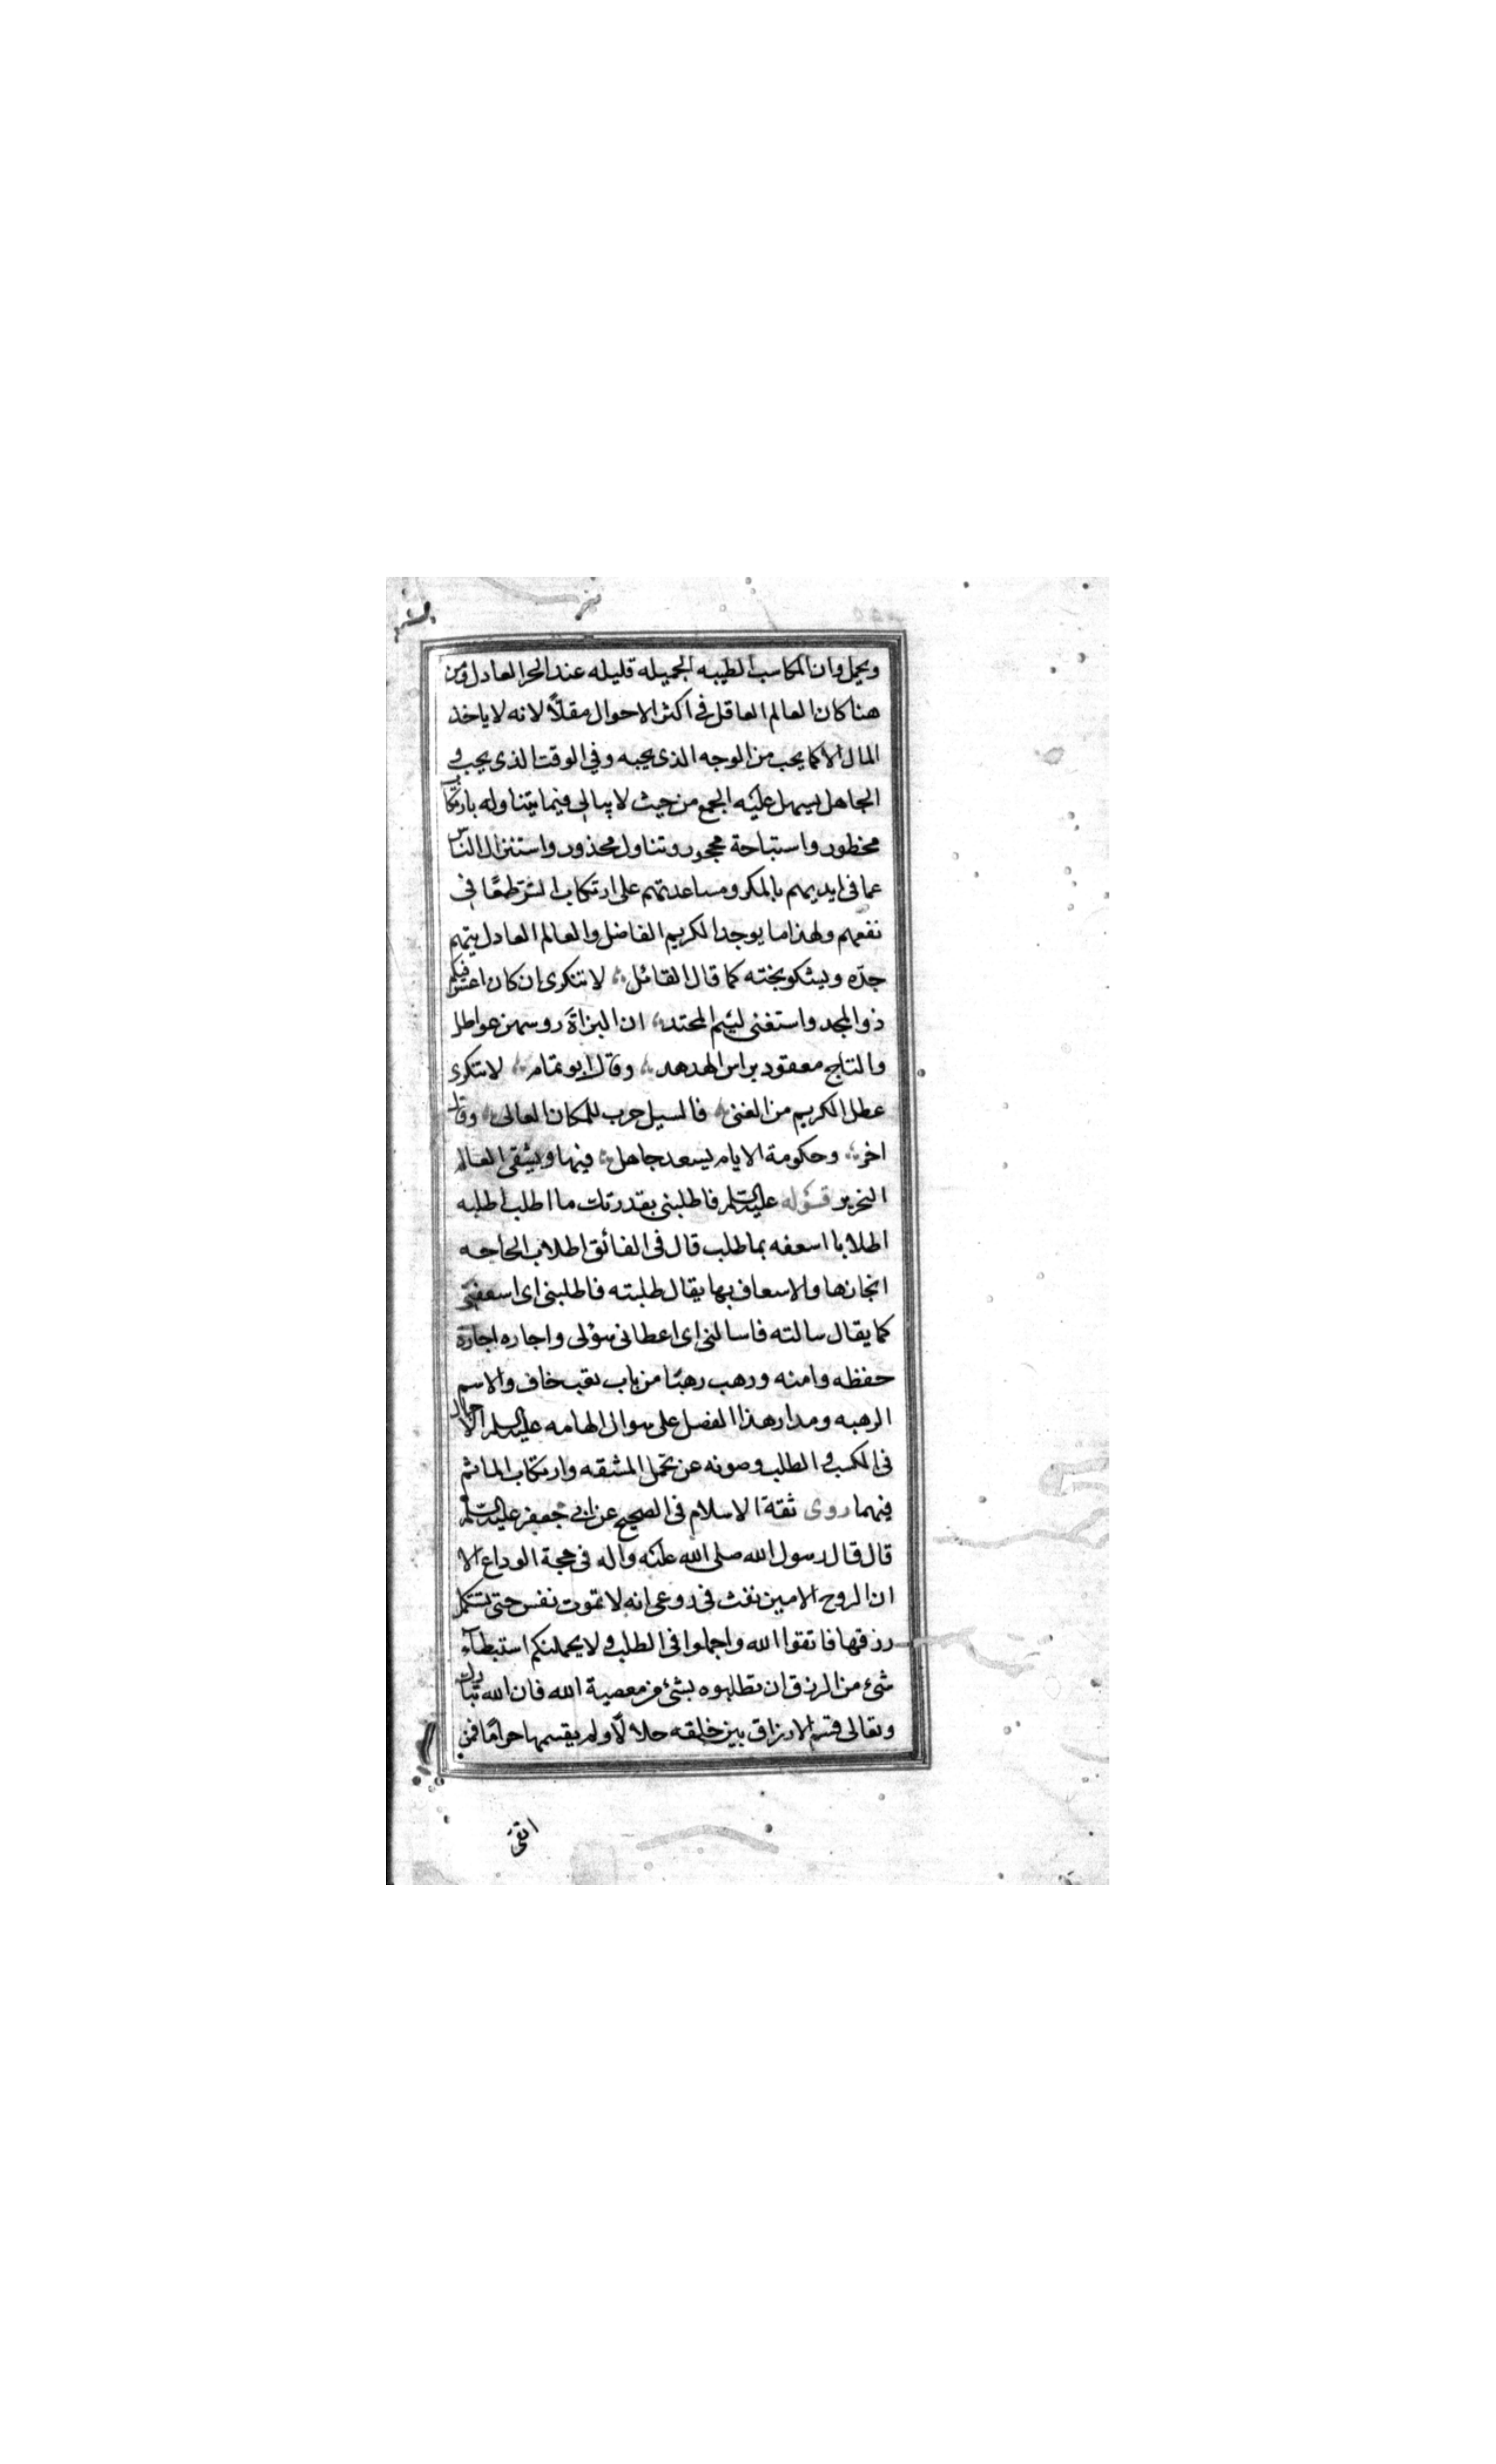 ويجمل وان المكاسب الطيبه الجميله قليله عند الحر العادل ومن
هنا كان العالم العاقل في اكثر الاحوال مقلاً لانه لا ياخذ
المال الا كما يجب من الوجه الذى يجبه وفي الوقت الذى يجب و
الجاهل يسهل عليه الجمع من حيث لا يبالى فيما يتناوله بارتكاب
محظور واستباحة محجور وتناول محذور واستنزال الناس
عما فى ايديهم بالمكر ومساعدتهم على ارتكاب الشر طمعًا فى
نفعهم ولهذا ما يوجد الكريم الفاضل والعالم العادل يتهم
جدّه ويشكو بخته كما قال القائل لا تنكرى ان كان اعسر فيكم
ذو المجد واستغنى لئيم المحتد ان البزاة روسهن عواطل
والتاج معقود براس الهدهد وقال ابو تمام لا تنكرى
عطل الكريم من الغنى فالسيل حرب للمكان العالى وقال
اخر وحكومة الايام يسعد جاهل فيها ويشقى العالم
النحرير قوله عليه السلم فاطلبنى بقدرتك ما اطلب اطلبه
اطلابا اسعفه بما طلب قال فى الفائق اطلاب الحاجه
انجازها والاسعاف بها يقال طلبته فاطلبنى اى اسعفنى
كما يقال سالته فاسالنى اى اعطانى سؤلى واجاره اجارة
حفظه وامنه ورهب رهبًا من باب تعب خاف والاسم
الرهبه ومدار هذا الفصل على سوال الهامه عليه السلم الاجمال
فى الكسب و الطلب وصونه عن تحمل المشقه وارتكاب الماثم
فيهما روى ثقة الاسلام فى الصحيح عن ابى جعفر عليه السلم
قال قال رسول الله صلى الله عليه واله فى حجة الوداع الا
ان الروح الامين نفث فى روعى انه لا تموت نفس حتى تستكمل
رزقها فاتقوا الله واجملوا فى الطلب و لا يحملنكم استبطآء
شىء من الرزق ان تطلبوه بشئ من معصية الله فان الله تبارك
وتعالى قسم الارزاق بين خلقه حلالاً ولم يقسمها حرامًا فمن
اتقى